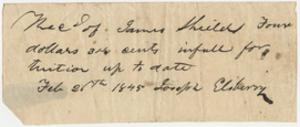 Rec d of James Shields Four
dollars 24 cents in full for
tuition up to date
Feb 26th 1845 Joseph